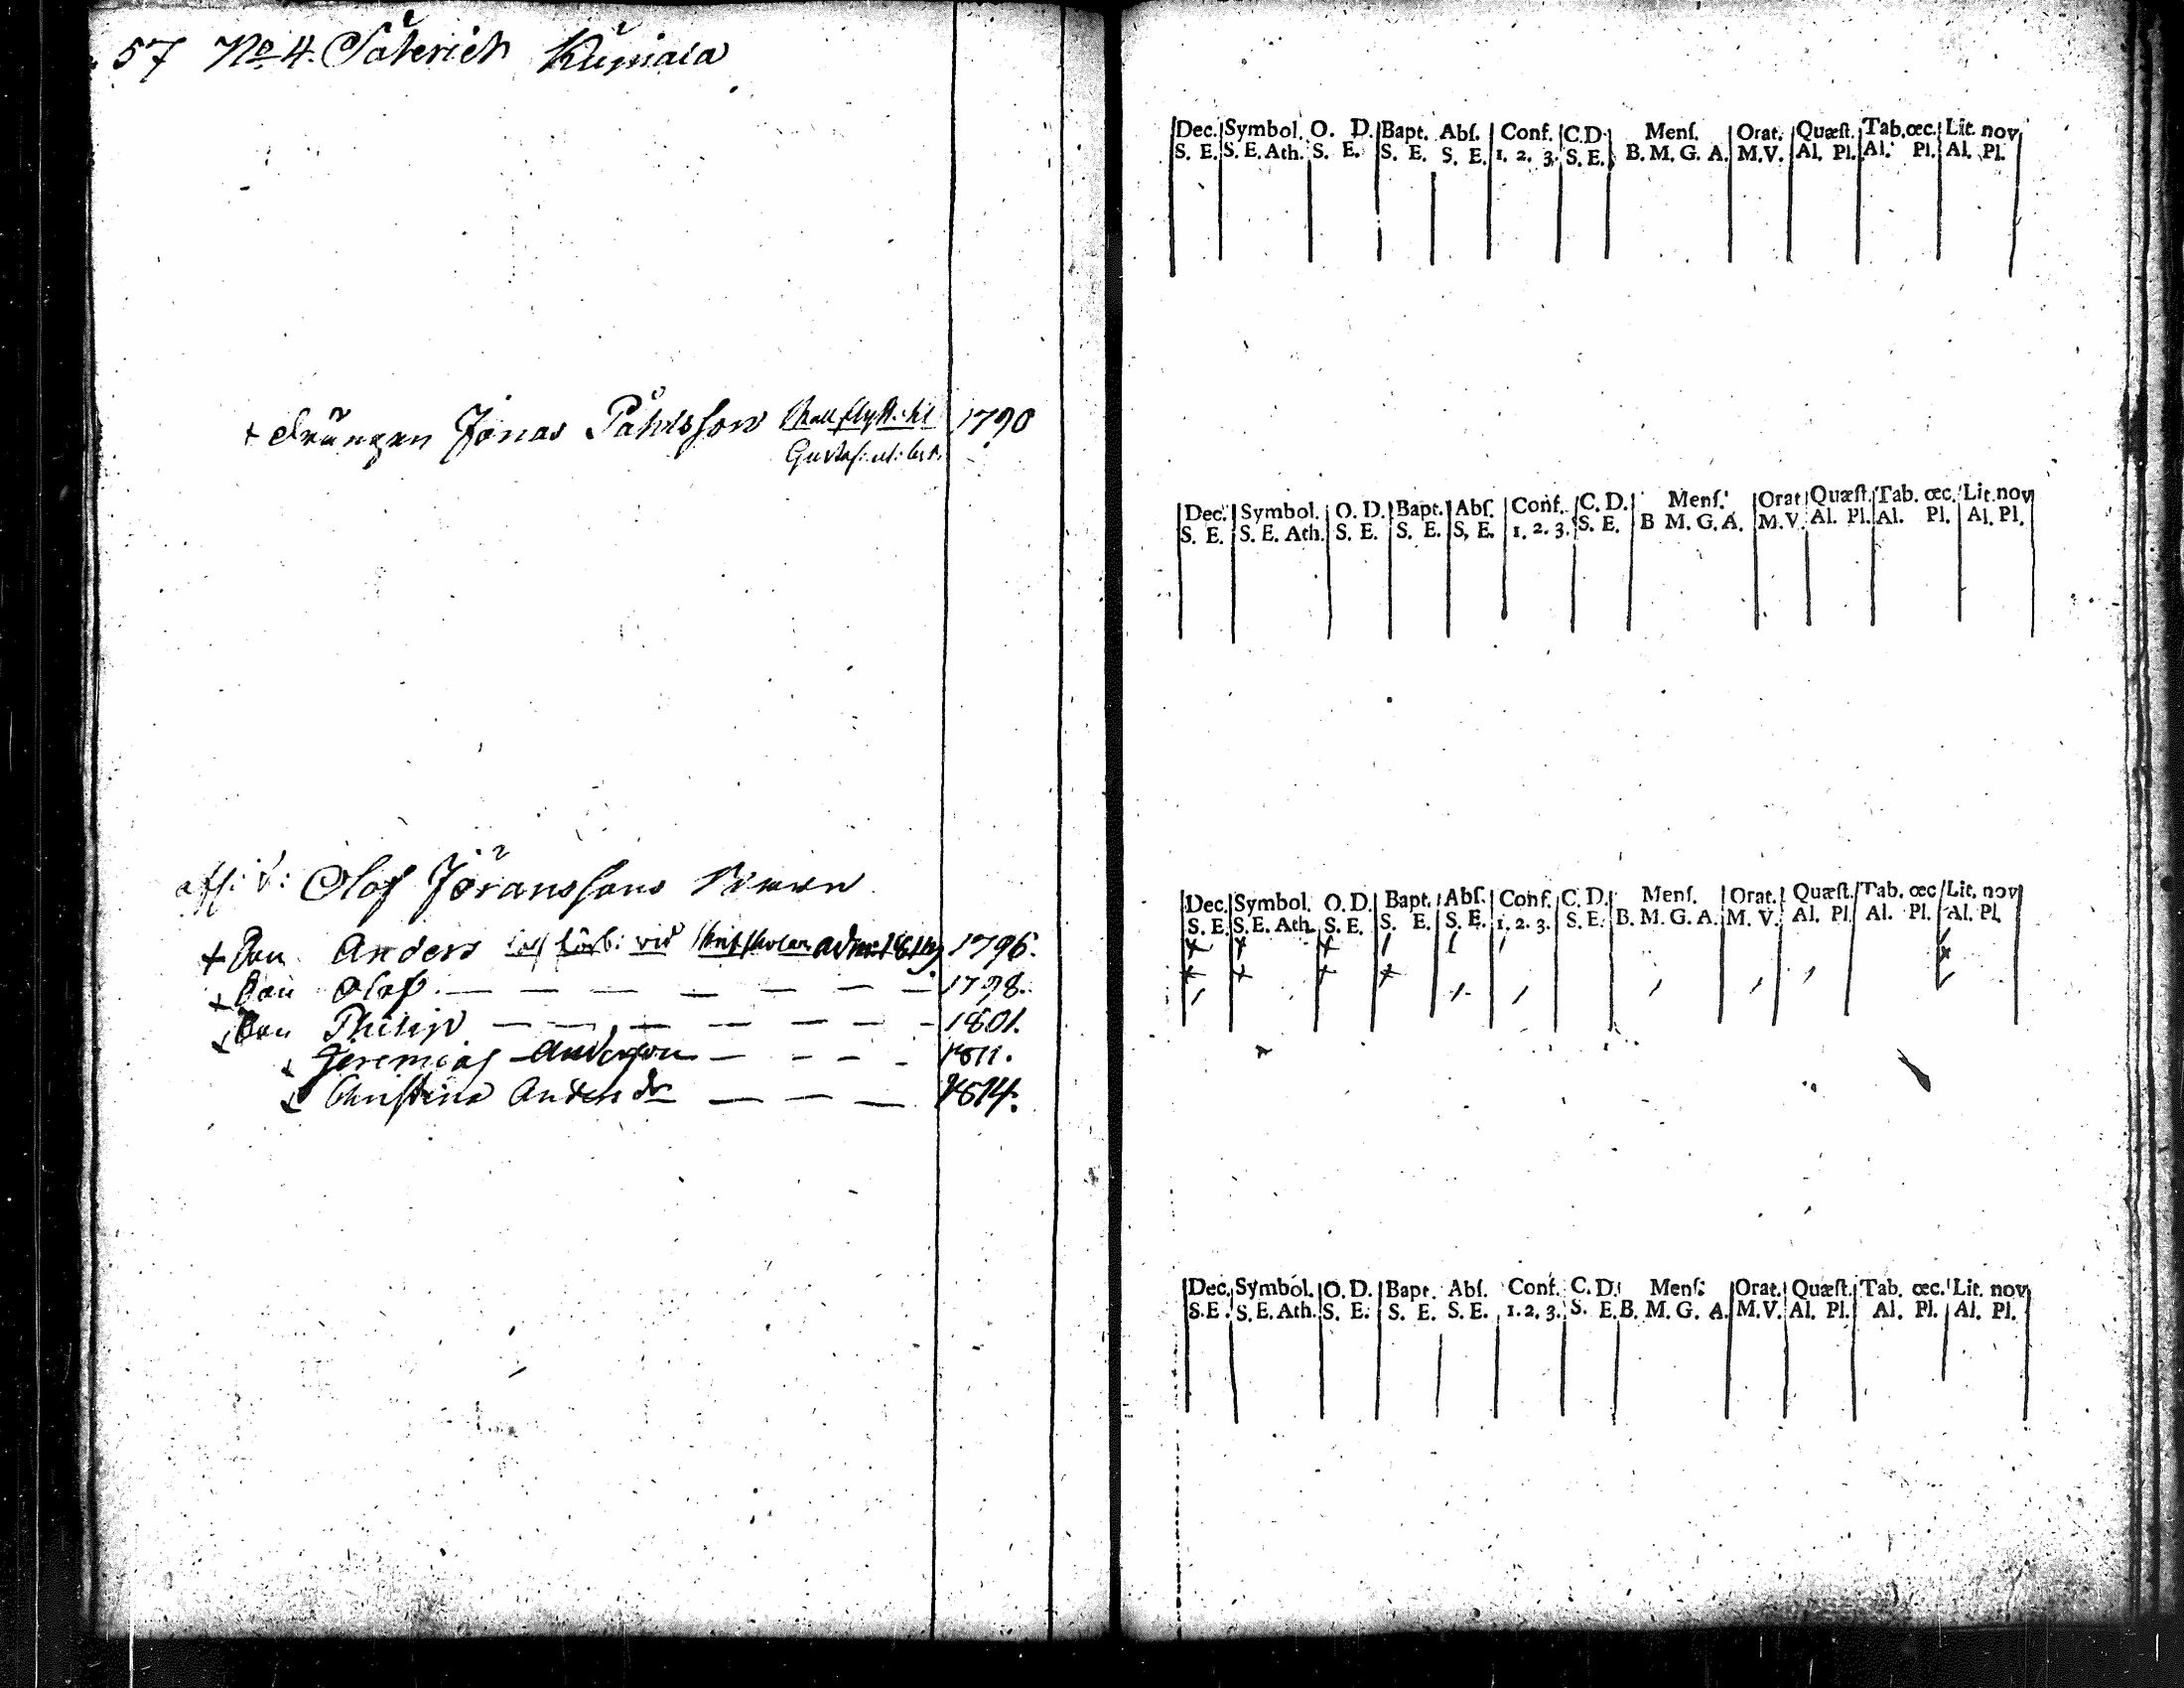 57 No 4. Såterich Kumiala
+ drängen Jonas Påhlsson skall flytt. til 1790
Gustaf:
Olof Jöranssons
+ Son Anders vid 1796.
+ Son Olof. — — — — — — — 1798.
Son Philip — — — — — — — 1801.
Jeremias Andersson — — — — 1811.
Christina Anders dr — — — 1814.
Dec. Symbol. O. D. Bapt. Abſ. Conf. C.D. Menſ. Orat. Quæſt. Tab. œc. Lit. nov
S. E. S. E. Ath. S. E. S. E. S. E. 1. 2. 3. S. E. B. M. G. A. M.V. Al. Pl. Al. Pl. Al. Pl.
Dec. Symbol. O. D. Bapt. Abſ. Conf. C. D. Menſ. Orat Quæſt. Tab. œc. Lit. nov
S. E. S. E. Ath. S. E. S. E. S. E. 1. 2. 3. S. E. B M. G. A. M.V. Al. Pl. Al. Pl. Al. Pl.
Dec. Symbol. O. D. Bapt. Abſ. Conf. C. D. Menſ. Orat. Quæſt. Tab. œc Lit. nov
S. E. S. E. Ath. S. E. S. E. S. E. 1. 2. 3. S. E. B. M. G. A. M. V. Al. Pl. Al. Pl. Al. Pl.
Dec. Symbol. O. D. Bapt. Abſ. Conf. C. D. Menſ. Orat. Quæſt. Tab. œc. Lit. nov
S. E. S. E. Ath. S. E. S. E. S. E. 1. 2. 3. S. E. B. M. G. A. M.V. Al. Pl. Al. Pl. Al. Pl.